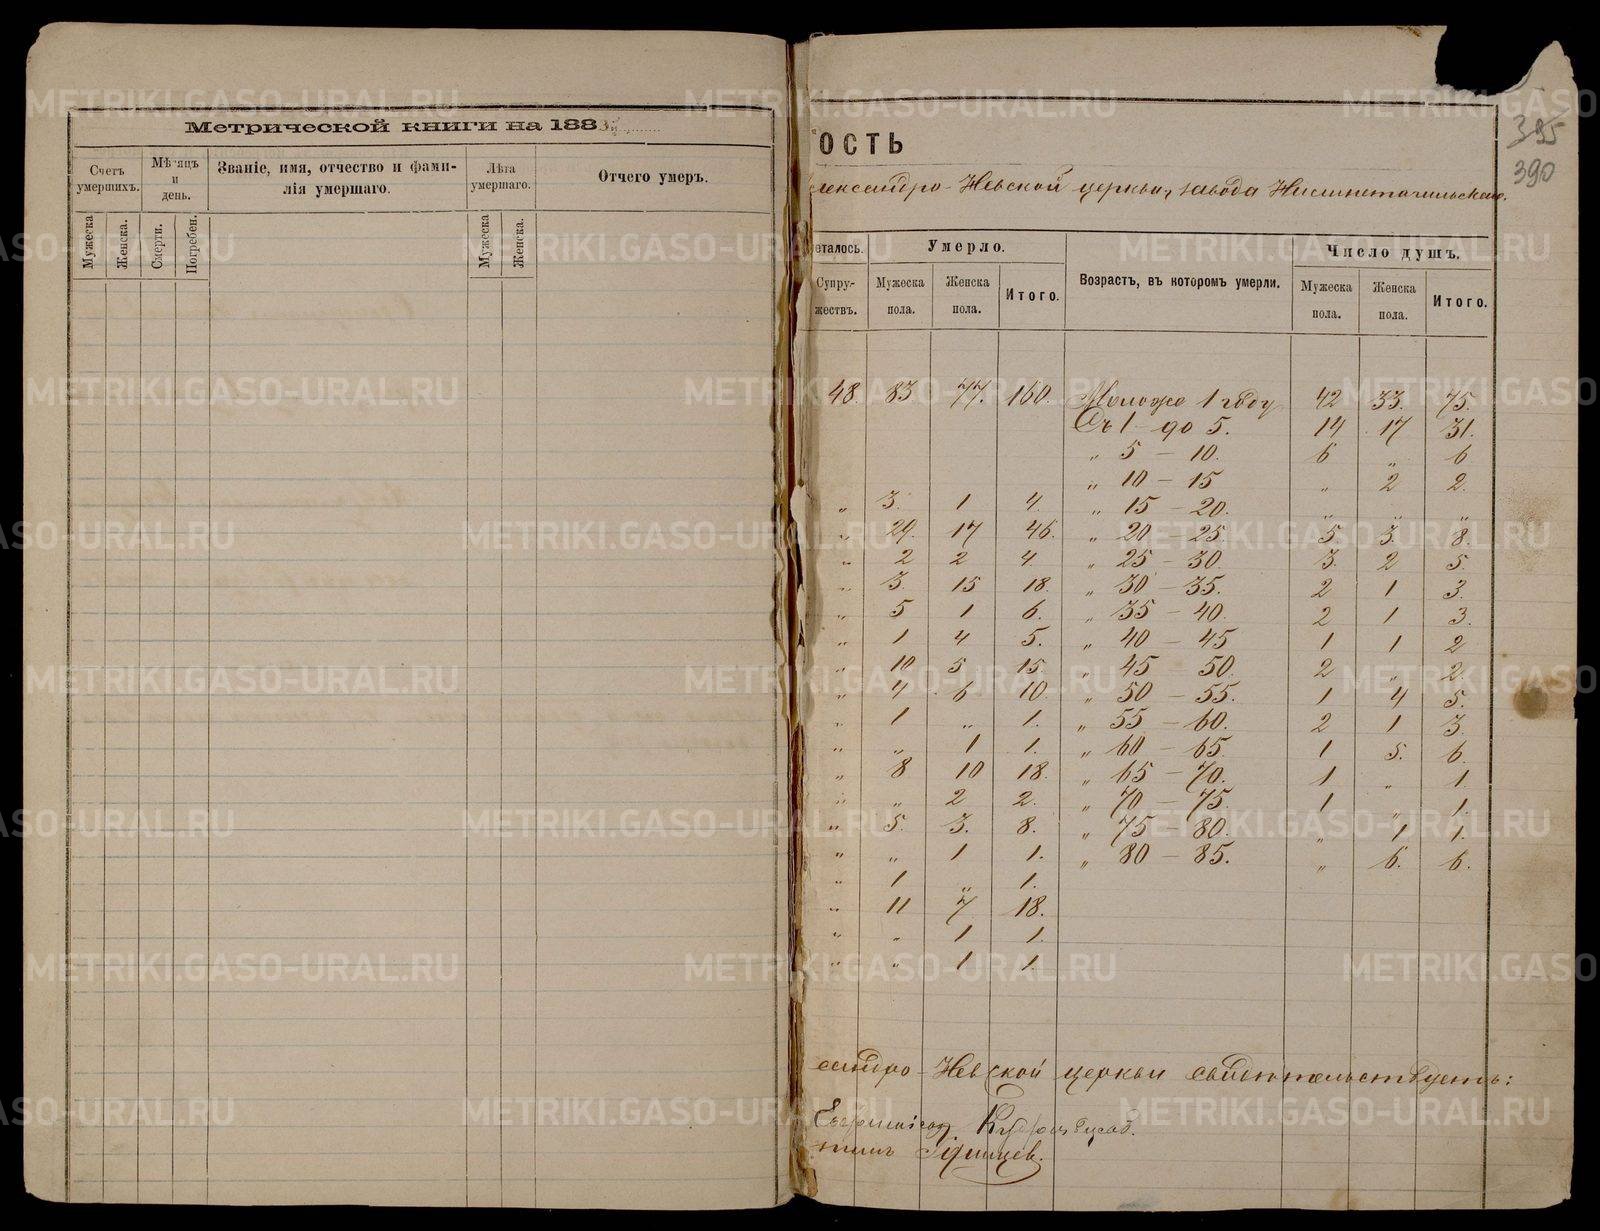 Метрической книги на 188
Счетъ умершихъ.
Мѣсяцъ и день.
Званіе, имя, отчество и фами-
лія умершаго.
Лѣта умершаго.
Отчего умеръ.
Мужеска
Женска.
Смерти.
Погребен.
Мужеска
Женска.
ость
395
390
лександро-Невской церкви, завода Нижнетагильскаго.
еталось.
Умерло.
Возрастъ, въ которомъ умерли.
Число душъ.
Супру-
жествъ.
Мужеска пола.
Женска пола.
Итого.
Мужеска пола.
Женска пола.
Итого.
48. 83 77. 160. Моложе 1 году 42 33. 75.
Съ 1 до 5. 14 17 31.
„ 5 – 10. 6 „ 6
„ 10 – 15 „ 2 2.
„ 3. 1 4. „ 15 – 20. „ „ „
„ 29. 17 46. „ 20 – 25. 5. 3. 8.
„ 2 2 4. „ 25 – 30. 3. 2 5.
„ 3. 15 18. „ 30 – 35. 2 1 3.
„ 5 1 6. „ 35 – 40. 2 1 3.
„ 1 4 5. „ 40 – 45 1 1 2
„ 10 5 15. „ 45 – 50. 2 „ 2.
„ 4 6 10. „ 50 – 55. 1 4 5.
„ 1 „ 1. „ 55 – 60. 2 1 3.
„ „ 1 1. „ 60 – 65. 1 5. 6.
„ 8 10 18. „ 65 – 70. 1 „ 1
„ „ 2 2. „ 70 – 75. 1 „ 1.
„ 5. 3. 8. „ 75 – 80. „ 1 1.
„ „ 1 1. „ 80 – 85. „ 6. 6.
„ 1 „ 1.
„ 11 7 18.
„ „ 1 1.
„ „ 1 1.
сандро-Невской церкви свидѣтельствуетъ:
METRIKI.GASO-URAL.RU